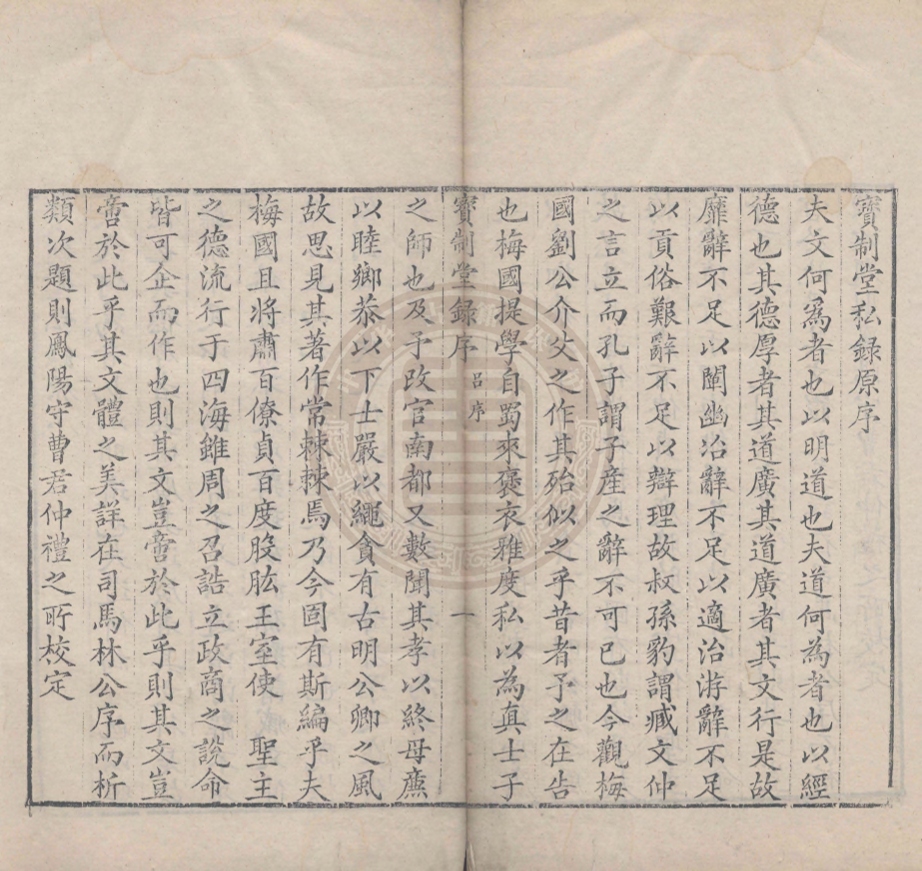 寶制堂私録原序
夫文何爲者也以明道也夫道何為者也以經
德也其德厚者其道廣其道廣者其文行是故
靡辭不足以闡幽冶辭不足以適治游辭不足
以貢俗艱辭不足以辯理故叔孫豹謂臧文仲
之言立而孔子謂子產之辭不可已也今觀梅
國劉公介父之作其殆似之乎昔者予之在告
也梅國提學自蜀來褒衣雅度私以為真士子
寶制堂録序 吕序 一
之師也及予改官南都又數聞其孝以終母廉
以睦鄉恭以下士嚴以繩貪有古明公卿之風
故思見其著作常棘棘焉乃今固有斯編乎夫
梅國且將肅百僚貞百度股肱王室使 聖主
之德流行于四海雖周之召誥立政商之說命
皆可企而作也則其文豈啻於此乎則其文豈
啻於此乎其文體之美詳在司馬林公序而析
類次題則鳳陽守曹君仲禮之所校定